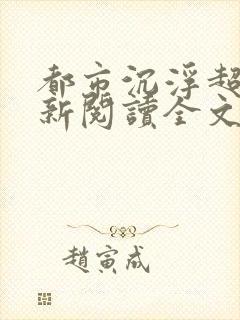 都市沉浮超
新閱讀全文
趙寅成